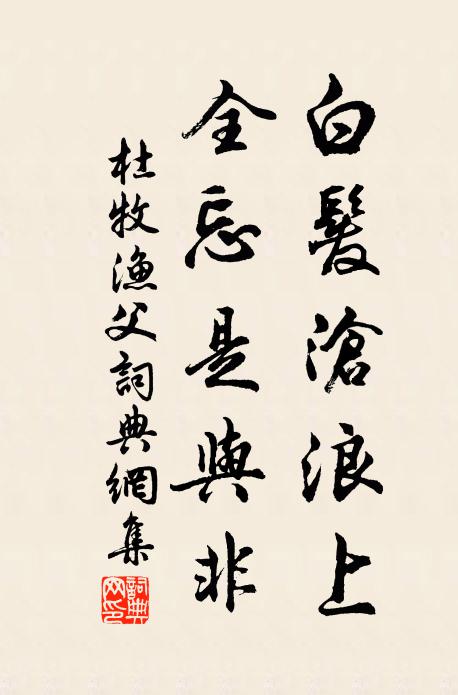 白髮滄浪上
全忘是與非
杜牧漁父詞典網集
詞典网印